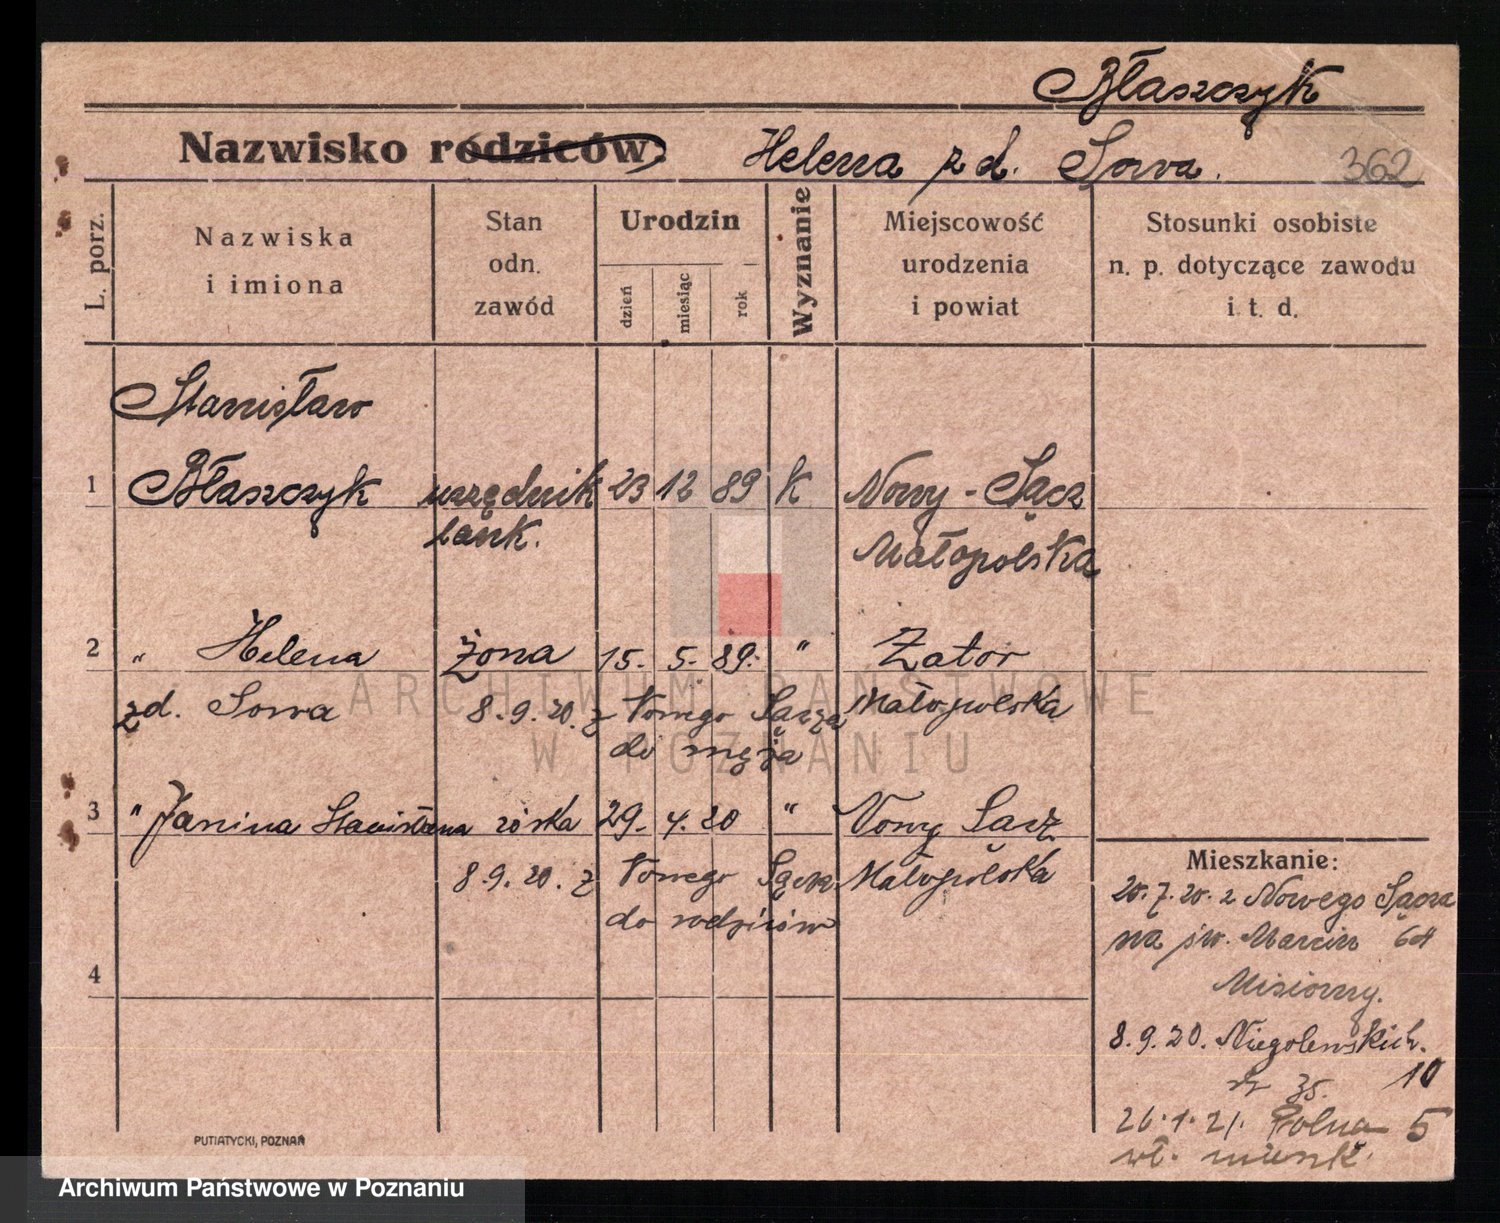 Błaszczyk
Nazwisko rodziców: Helena z d. Sowa. 362
L. porz.
Nazwiska
i imiona
Stan
odn.
zawód
Urodzin
dzień
miesiąc
rok
Wyznanie
Miejscowość
urodzenia
i powiat
Stosunki osobiste
n. p. dotyczące zawodu
i. t. d.
Stanisław
1 Błaszczyk urzędnik 23 12 89 K Nowy-Sącz
bank. Małopolska
2 " Helena żona 15. 5. 89. " Zator
zd. Sowa 8.9.20. z Nowego Sącza Małopolska
do męża
ARCHIWUM PAŃSTWOWE
W POZNANIU
3 " Janina Stanisława córka 29. 4. 20 " Nowy Sącz
8.9.20. z Nowego Sącza Małopolska
do rodziców
4
Mieszkanie:
20.7.20. z Nowego Sącza
na św. Marcin 64
8.9.20. Niegolewskich.
10
26.1.21. Polna 5
wł. mieszk.
PUTIATYCKI, POZNAŃ
Archiwum Państwowe w Poznaniu